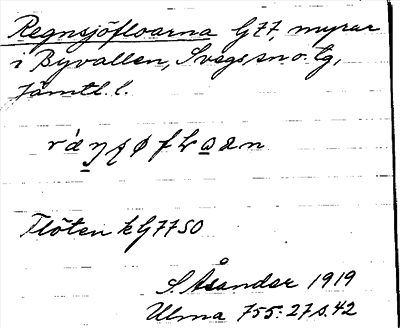 Regnsjöfloarna G77, myrar
i Byvallen, Svegs sn o. tg,
Jämtl. l.
Flöten k G7750
S. Åsander 1919
Ulma 755:27 s. 42